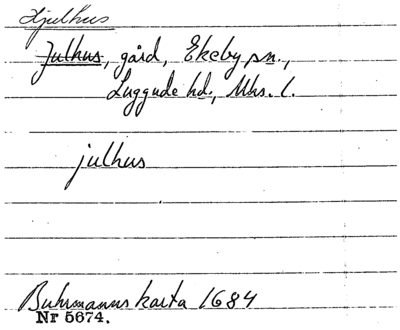 Hjulhus
Julhus, gård, Ekeby sn.,
Luggude hd., Mhs. l.
julhus
Buhrmanns karta 1684
Nr 5674.